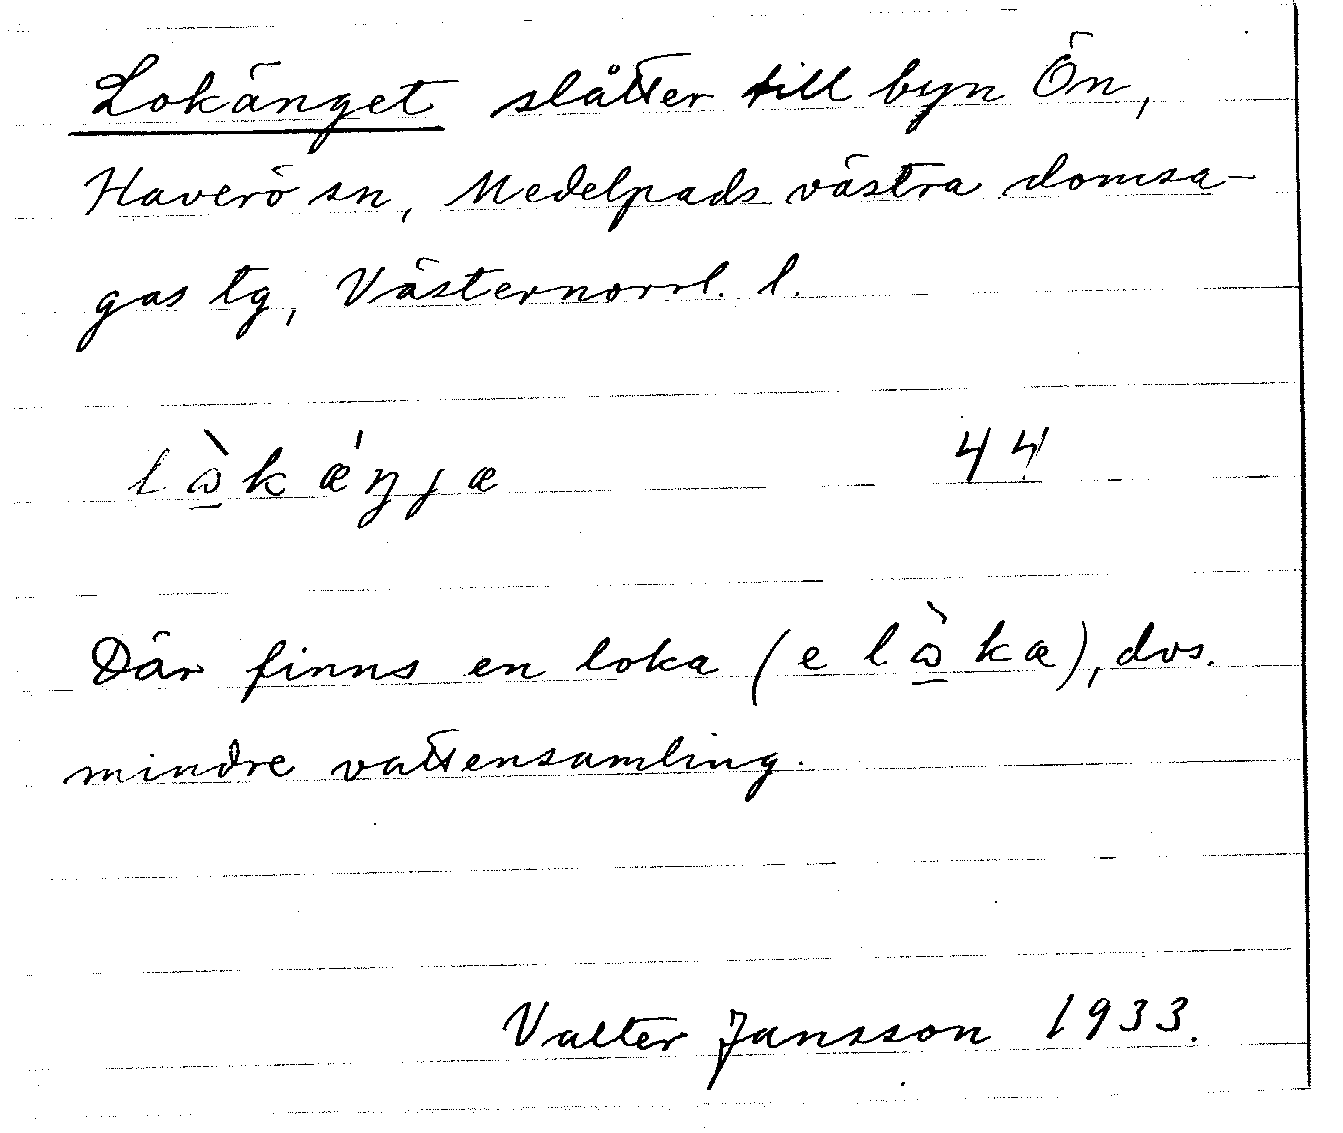 Lokänget slåtter till byn Ön,
Haverö sn, Medelpads västra domsa-
gas tg, Västernorrl. l.
lɷ̠̀kæ̍ŋjæ 44
Där finns en loka (e lɷ̠̀kæ), dvs.
mindre vattensamling.
Valter Jansson 1933.